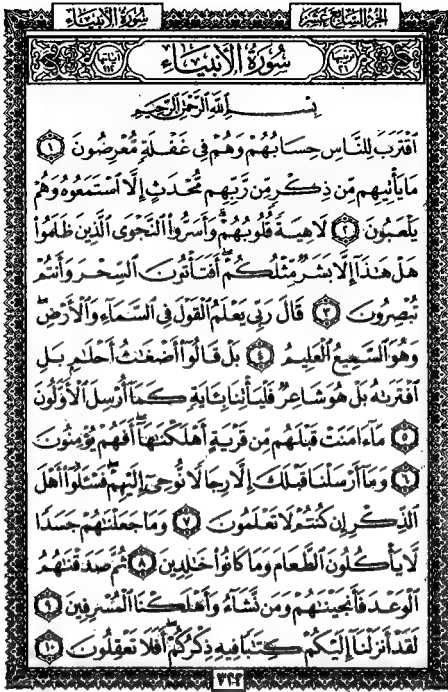 الجُزْءُ السَّابِعَ عَشَرَ
سُورَةُ الأَنْبِيَاءِ
ترتيبها ٢١
سُورَةُ الأَنْبِيَاءِ
آياتها ١١٢
بِسْمِ اللَّهِ الرَّحْمَٰنِ الرَّحِيمِ
ٱقۡتَرَبَ لِلنَّاسِ حِسَابُهُمۡ وَهُمۡ فِي غَفۡلَةٖ مُّعۡرِضُونَ ١
مَا يَأۡتِيهِم مِّن ذِكۡرٖ مِّن رَّبِّهِم مُّحۡدَثٍ إِلَّا ٱسۡتَمَعُوهُ وَهُمۡ
يَلۡعَبُونَ ٢ لَاهِيَةٗ قُلُوبُهُمۡۗ وَأَسَرُّواْ ٱلنَّجۡوَى ٱلَّذِينَ ظَلَمُواْ
هَلۡ هَٰذَآ إِلَّا بَشَرٞ مِّثۡلُكُمۡۖ أَفَتَأۡتُونَ ٱلسِّحۡرَ وَأَنتُمۡ
تُبۡصِرُونَ ٣ قَالَ رَبِّي يَعۡلَمُ ٱلۡقَوۡلَ فِي ٱلسَّمَآءِ وَٱلۡأَرۡضِۖ
وَهُوَ ٱلسَّمِيعُ ٱلۡعَلِيمُ ٤ بَلۡ قَالُوٓاْ أَضۡغَٰثُ أَحۡلَٰمِۭ بَلِ
ٱفۡتَرَىٰهُ بَلۡ هُوَ شَاعِرٞ فَلۡيَأۡتِنَا بِـَٔايَةٖ كَمَآ أُرۡسِلَ ٱلۡأَوَّلُونَ
٥ مَآ ءَامَنَتۡ قَبۡلَهُم مِّن قَرۡيَةٍ أَهۡلَكۡنَٰهَآۖ أَفَهُمۡ يُؤۡمِنُونَ
٦ وَمَآ أَرۡسَلۡنَا قَبۡلَكَ إِلَّا رِجَالٗا نُّوحِيٓ إِلَيۡهِمۡۖ فَسۡـَٔلُوٓاْ أَهۡلَ
ٱلذِّكۡرِ إِن كُنتُمۡ لَا تَعۡلَمُونَ ٧ وَمَا جَعَلۡنَٰهُمۡ جَسَدٗا
لَّا يَأۡكُلُونَ ٱلطَّعَامَ وَمَا كَانُواْ خَٰلِدِينَ ٨ ثُمَّ صَدَقۡنَٰهُمُ
ٱلۡوَعۡدَ فَأَنجَيۡنَٰهُمۡ وَمَن نَّشَآءُ وَأَهۡلَكۡنَا ٱلۡمُسۡرِفِينَ ٩
لَقَدۡ أَنزَلۡنَآ إِلَيۡكُمۡ كِتَٰبٗا فِيهِ ذِكۡرُكُمۡۚ أَفَلَا تَعۡقِلُونَ ١٠
٣٢٢